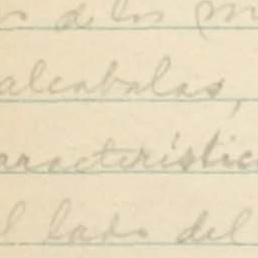 s de los m
alcabalas,
aracterístic
l lado del